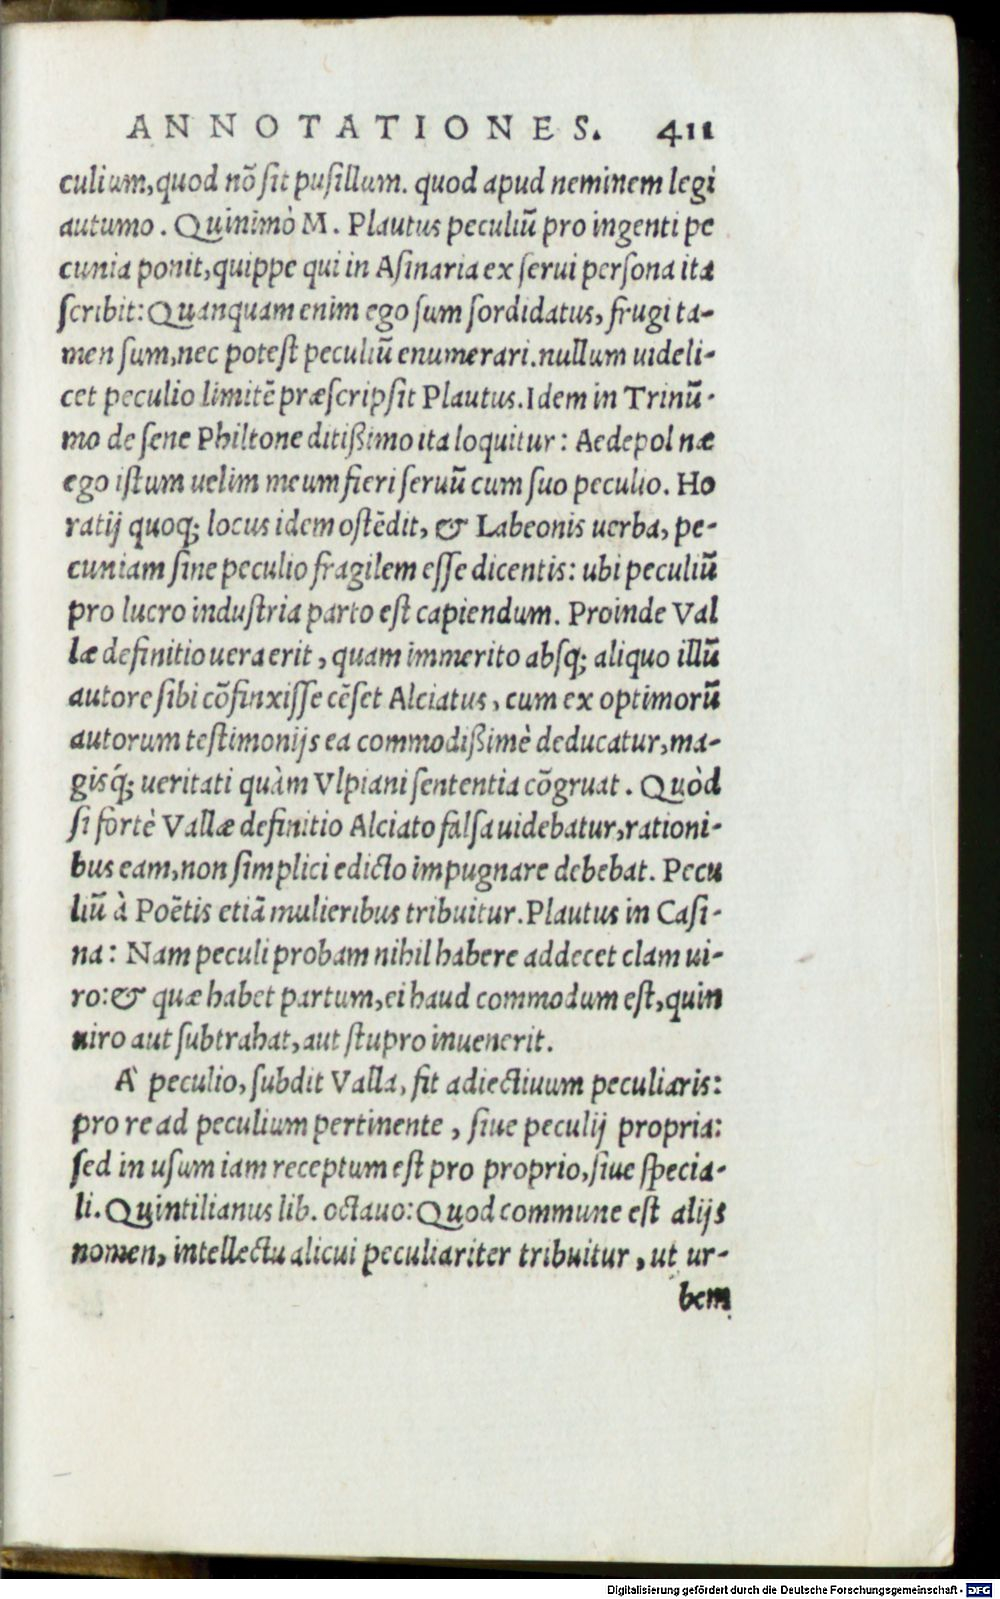 ANNOTATIONES. 411
culium, quod nō sit pusillum. quod apud neminem legi
autumo. Quinimò M. Plautus peculiū pro ingenti pe
cunia ponit, quippe qui in Asinaria ex serui persona ita
scribit: Quanquam enim ego sum sordidatus, frugi ta-
men sum, nec potest peculiū enumerari. nullum uideli-
cet peculio limitē præscripsit Plautus. Idem in Trinū-
mo de sene Philtone ditißimo ita loquitur: Aedepol næ
ego istum uelim meum fieri seruū cum suo peculio. Ho
ratij quoq; locus idem ostēdit, & Labeonis uerba, pe-
cuniam sine peculio fragilem esse dicentis: ubi peculiū
pro lucro industria parto est capiendum. Proinde Val
læ definitio uera erit, quam immerito absq; aliquo illū
autore sibi cōfinxisse cēset Alciatus, cum ex optimorū
autorum testimonijs ea commodißimè deducatur, ma-
gisq́; ueritati quàm Vlpiani sententia cōgruat. Quòd
si fortè Vallæ definitio Alciato falsa uidebatur, rationi-
bus eam, non simplici edicto impugnare debebat. Pecu
liū à Poētis etiā mulieribus tribuitur. Plautus in Casi-
na: Nam peculi probam nihil habere addecet clam ui-
ro: & quæ habet partum, ei haud commodum est, quin
uiro aut subtrahat, aut stupro inuenerit.
À peculio, subdit Valla, fit adiectiuum peculiaris:
pro re ad peculium pertinente, siue peculij propria:
sed in usum iam receptum est pro proprio, siue specia-
li. Quintilianus lib. octauo: Quod commune est alijs
nomen, intellectu alicui peculiariter tribuitur, ut ur-
bem
Digitalisierung gefördert durch die Deutsche Forschungsgemeinschaft - DFG